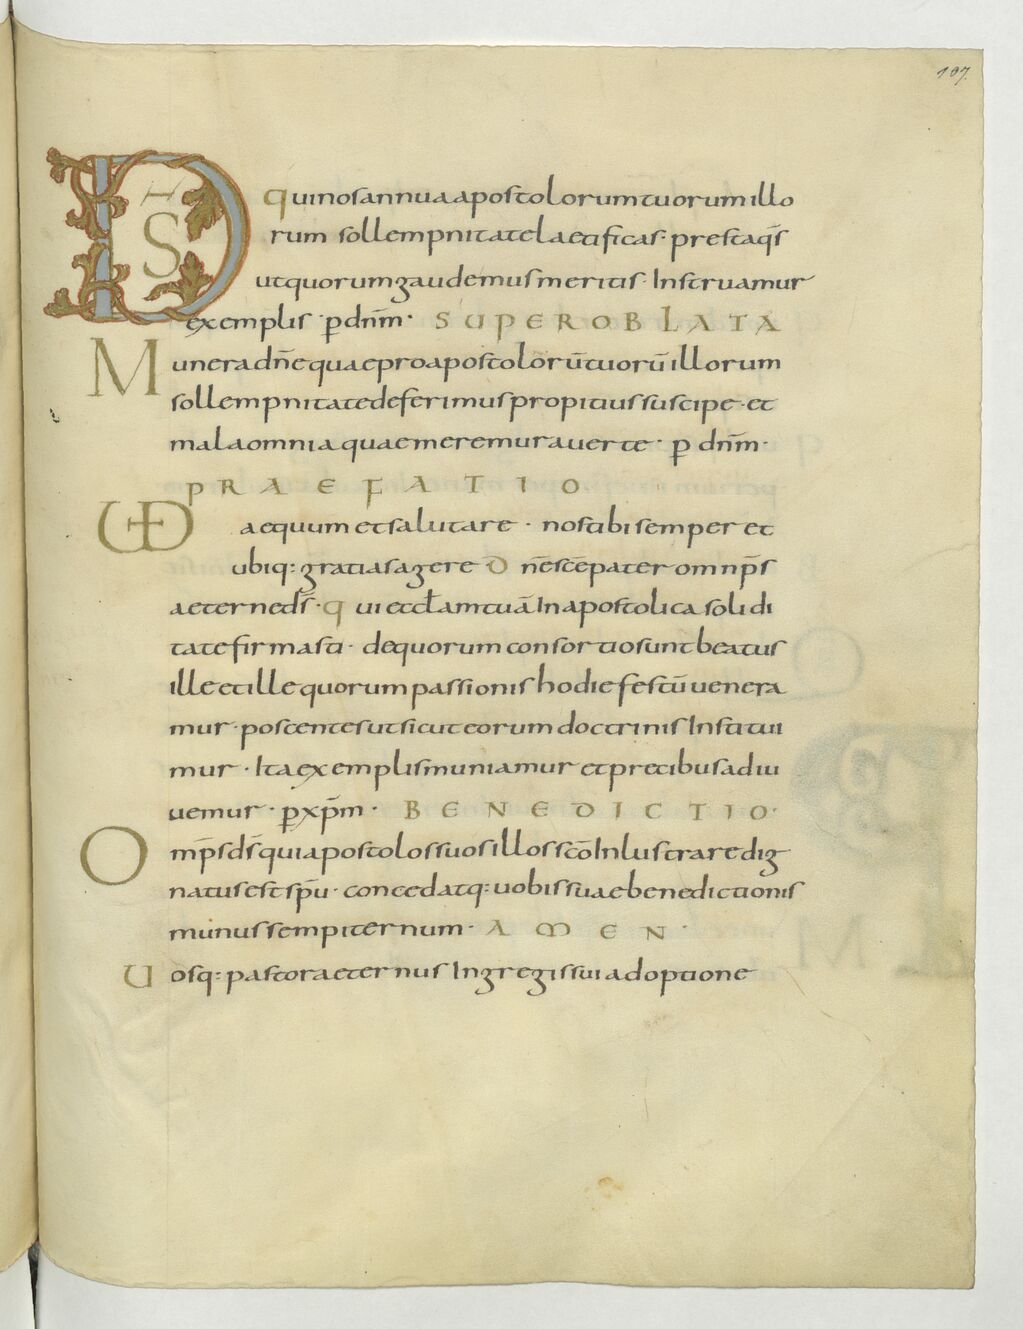 107.
D̄S qui nos annua apostolorum tuorum illo
rum sollempnitate laetificas· prestaq̄s
ut quorum gaudemus meritis· Instruamur
exemplis· p̲ dn̄m· SUPER OBLATA
Munera dn̄e quae pro apostolorū tuorū illorum
sollempnitate deferimus propitius suscipe· et
mala omnia quae meremur auerte· p̲ dn̄m·
PRAEFATIO
UD aequum et salutare· nos tibi semper et
ubiq: gratias agere Dn̄e sc̄e pater omnp̄s
aeterne ds̄· qui eccl̄am tuā In apostolica solidi
tate firmasti· de quorum consortio sunt beatus
ille et ille quorum passionis hodie festū uenera
mur· poscentes ut sicut eorum doctrinis Institui
mur· Ita exemplis muniamur et precibus adiu
uemur· p̲ xp̄m· BENEDICTIO·
Omp̄s ds̄ qui apostolos suos illos sc̄o Inlustrare dig
natus est sp̄u· concedatq: uobis suae benedictionis
munus sempiternum· AMEN·
Uosq: pastor aeternus In gregis sui adoptione